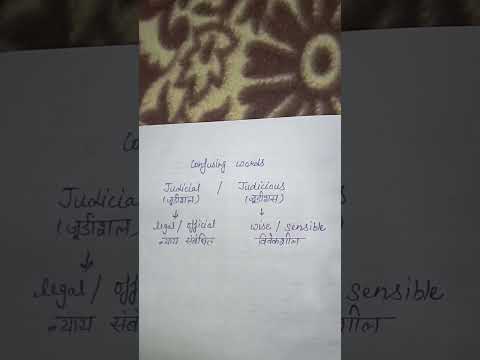 Confusing words
Judicial / Judicious
(जूडीशल) (जूडीशस)
↓ ↓
legal / official wise / sensible
न्याय संबंधित विवेकशील